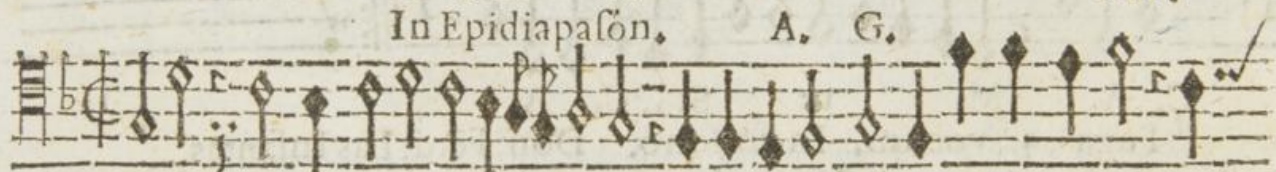 In Epidiapaſön. A. G.